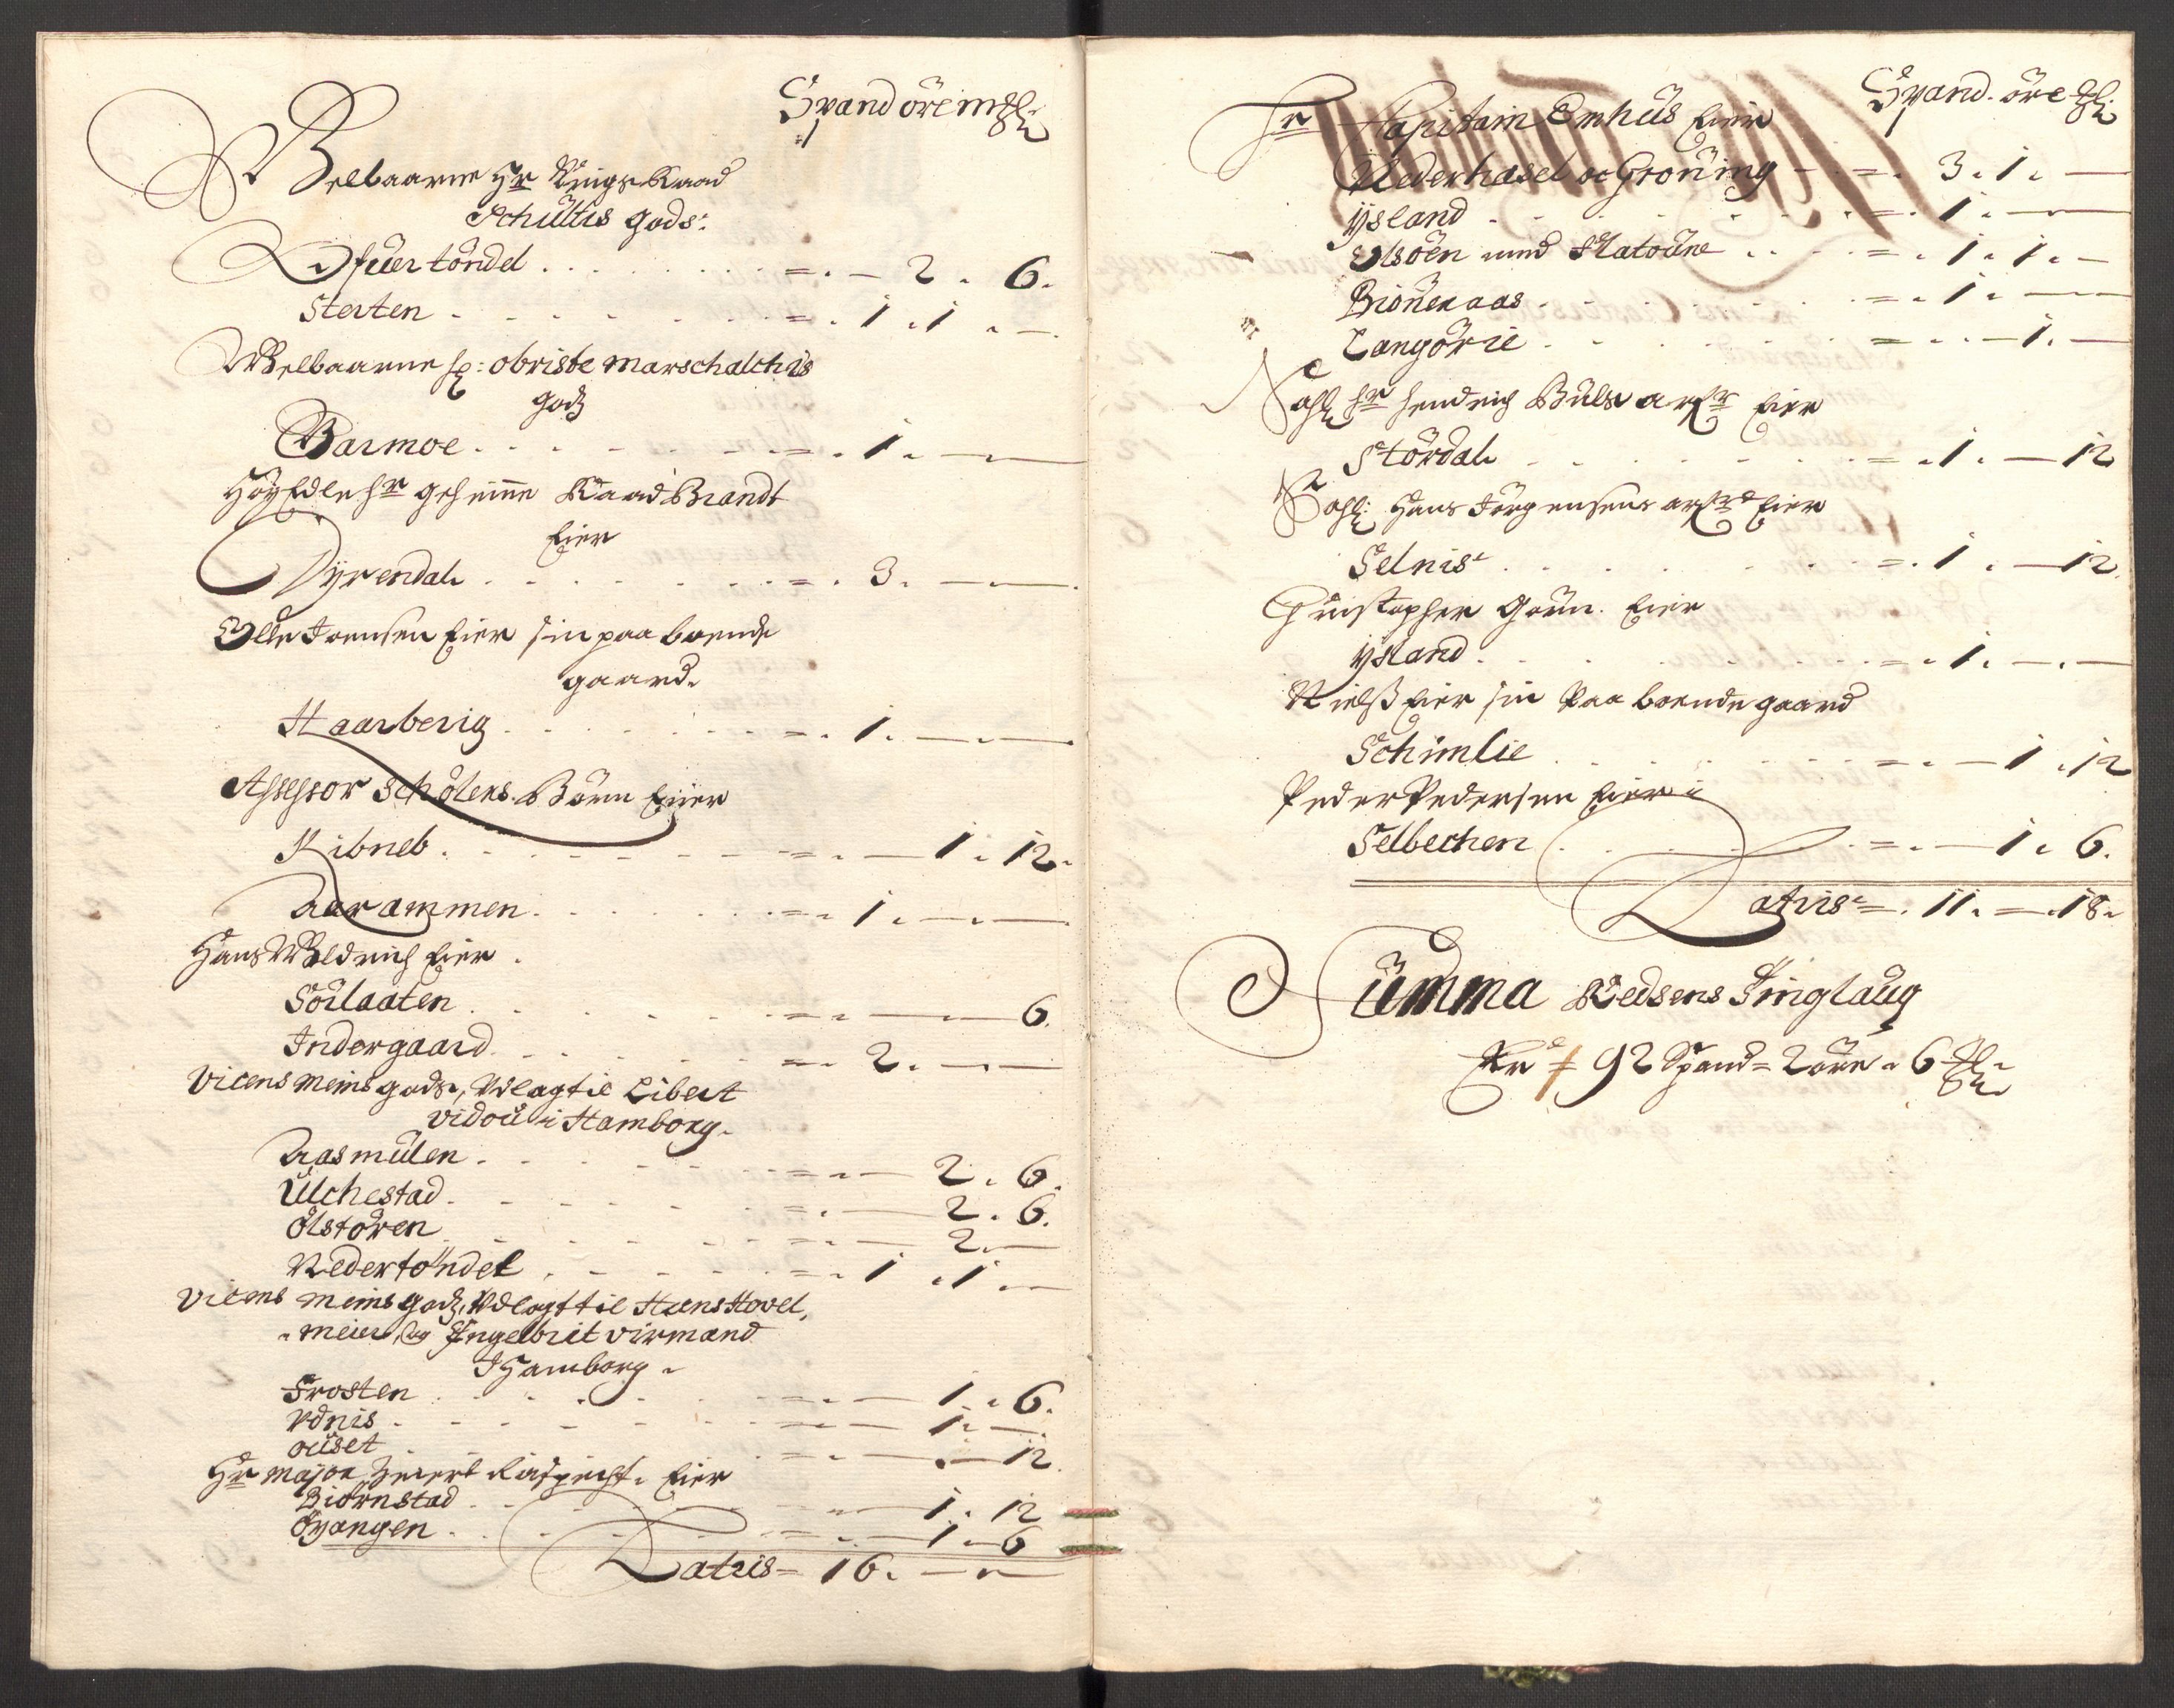 Spand öre mkl:
Velbaarne Hr Krigs Raad
Schültis gods:
Ofuertöndel . . . = . — 2 . 6.
Sterten . . . = . 1 . 1 . —
Welbaarne Hr: obriste Marschalchis
godz
Barmoe . . . = . 1 . — —
Höy Edle Hr geheime Raad Brandt
Eier
Dyrendal . . . = . 3 . — —
Olle Joensen Eier sin paa boende
gaard.
Haarberig . . . = . 1 . — —
Assessor Schölers Börn Eiier
Kibneb . . . = . — 1 . 12.
Aarammen . . . = . 1 . — —
Hans Weldrich Eier .
Sörlaaten . . . = . — — 6.
Indergaard . . . = . 2 . — —
Vicens Meins gods, Udlagt til Libert
Vidou i Hamborg.
Aasmülen . . . = . — 2 . 6.
Ulchestad . . . = . — 2 . 6.
Ölstören . . . = . — 2 . —
Nedertöndel . . . = . 1 . 1 . —
Vicens Meins godz, Udlagt til Hans Hovel,
meier, og Ingelbrit Virmand
I Hamborg .
Frosten . . . = . — 1 . 6.
Udnis . . . = . — 1 . —
ouset . . . = . — . 12.
Hr Major Eier
Biörnstad . . . = . — 1 . 12
Svangen . . . = . — 1 . 6
Latris = 16 . — . —
Spand . öre mkl:
Hr Kapitain Emhüs Eier
Nederhasel oc Gröning — . = . 3 . 1 . —
ysland . . . = . 1 . —
Olsöen unnd Slatoüne . . . = . 1 . 1 . —
Biönenaas . . . = . 1 . —
Langörie . . . = . — 1 . —
Sahl: Hr Hendrich Büls arfr Eier
Stördal . . . = . 1 . — 12
Sahl: Hans Jörgensens arfr: Eier
Selnis . . . = . 1 . — 12.
Christopher Eier
ysland . . . = . 1 . — . —
Nielss Eier sin Paa boende gaard
Schimlie . . . = . — 1 . 12
Peder Pedersen Eier i
Selbechen . . . = . — 1 . 6.
Latris = . 11 . — . 18.
Sümma Redsens Tinglaüg
Er = 92 Spand = 2 öre . 6 mkl: